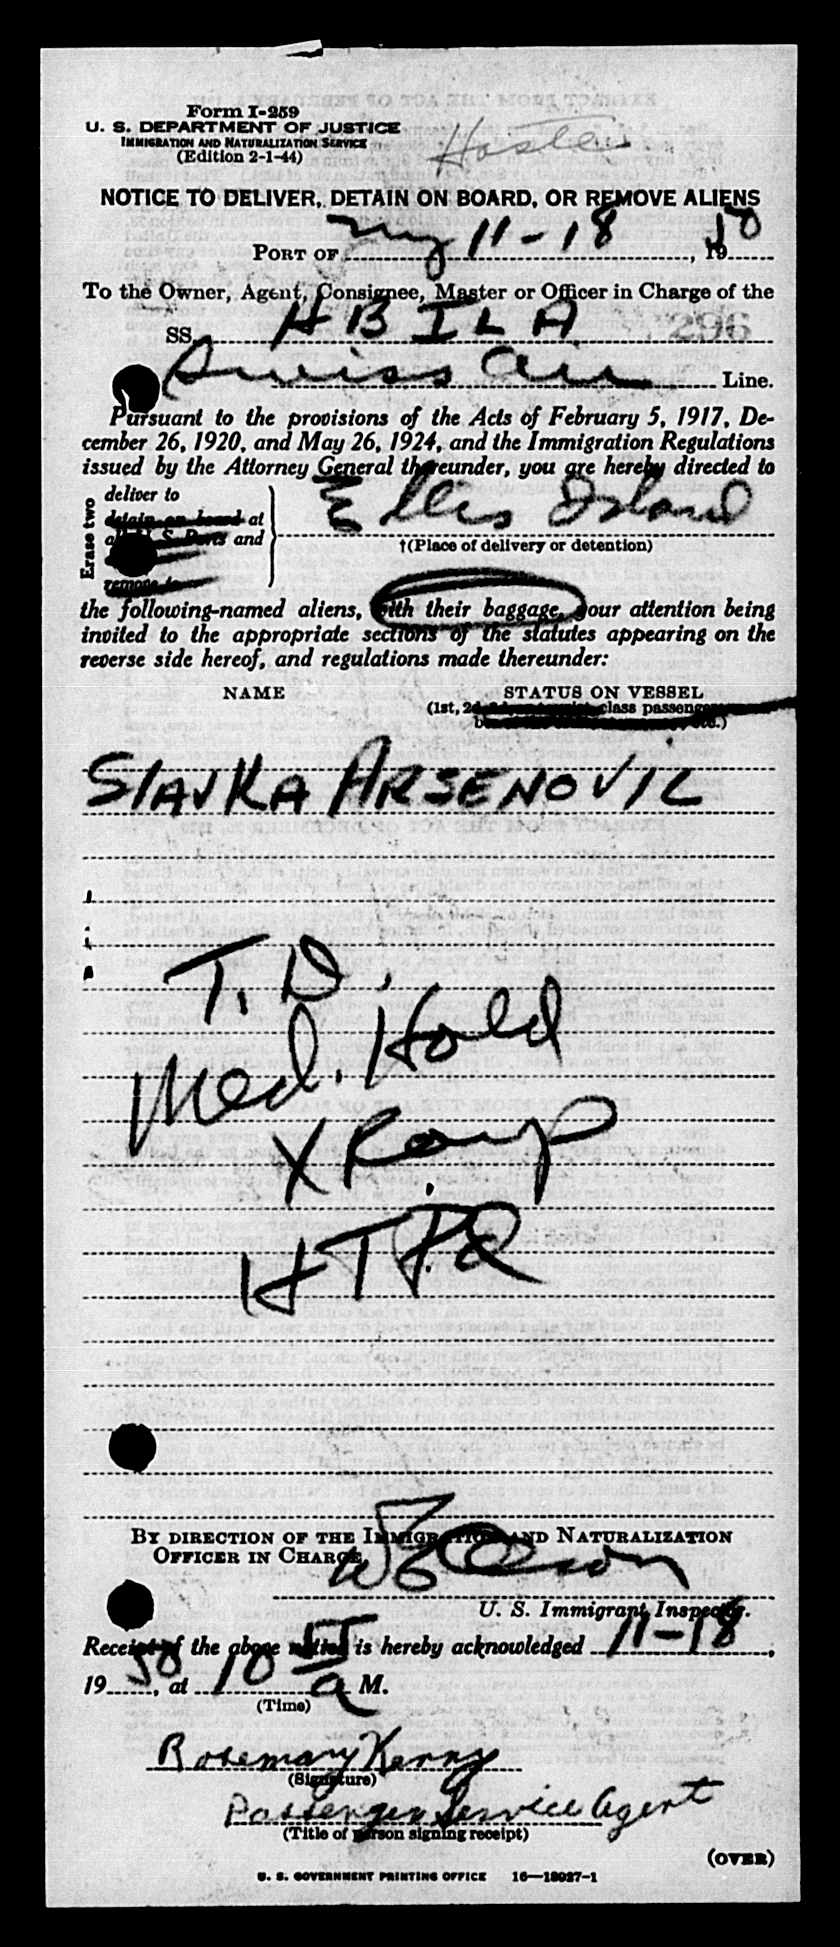 Form I-259
U. S. DEPARTMENT OF JUSTICE
IMMIGRATION AND NATURALIZATION SERVICE
(Edition 2-1-44)
NOTICE TO DELIVER, DETAIN ON BOARD, OR REMOVE ALIENS
PORT OF NY 11-18, 1950
To the Owner, Agent, Consignee, Master or Officer in Charge of the
SS. HBILA 296
Swiss Air Line.
Pursuant to the provisions of the Acts of February 5, 1917, De-
cember 26, 1920, and May 26, 1924, and the Immigration Regulations
issued by the Attorney General thereunder, you are hereby directed to
Erase two
deliver to
detain on board at
U. S. Ports and
remove to
Ellis Island
†(Place of delivery or detention)
the following-named aliens, with their baggage, your attention being
invited to the appropriate sections of the statutes appearing on the
reverse side hereof, and regulations made thereunder:
NAME STATUS ON VESSEL
(1st, 2d, class passenger
SLAVKA ARSENOVIC
T.D.
Med. Hold
X
HT
BY DIRECTION OF THE IMMIGRATION AND NATURALIZATION
OFFICER IN CHARGE,
Olson
U. S. Immigrant Inspector.
Receipt of the above notice is hereby acknowledged 11-18,
1950, at 10 15 a M.
(Time)
Rosemary Kenny
(Signature)
Passenger Service Agent
(Title of person signing receipt)
(OVER)
U. S. GOVERNMENT PRINTING OFFICE 16—18027-1